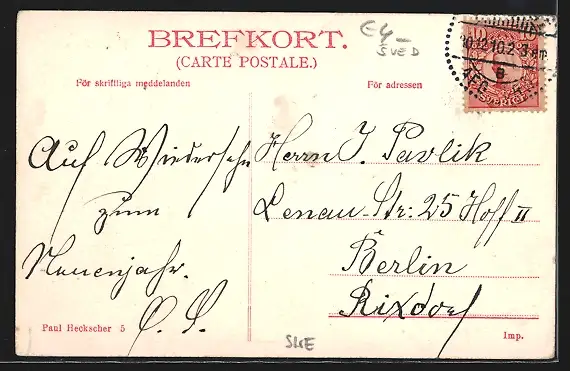 BREFKORT.
(CARTE POSTALE.)
För skriftliga meddelanden
För adressen
E4_
SVED
30.12.10.2-3 em
SVERIGE
Auf Wiedersehn
zum
Neuenjahr.
Herrn J. Pavlik
Lenau-Str: 25 Hoff II
Berlin
Rixdorf
Paul Heckscher 5
SKE
Imp.